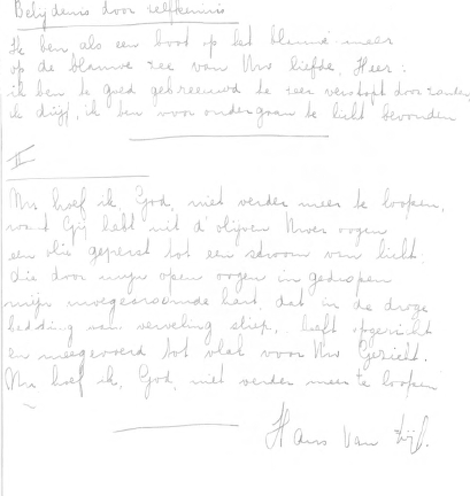 Belijdenis door zelfkennis
Ik ben als een boot op het blauwe meer
op de blauwe zee van Uw liefde, Heer:
ik ben te goed gebreeuwd te zeer verstopt door zonden
ik drijf, ik ben voor ondergaan te licht bevonden
II
Nu hoef ik, God, niet verder meer te loopen,
want Gij hebt uit d'olijven Uwer oogen
een olie geperst tot een stroom van licht:
die door mijn open oogen in gedropen
mijn moegestroomde hart, dat in de droge
bedding van verveling sliep, heeft opgericht
en meegevoerd tot vlak voor Uw Gezicht.
Nu hoef ik, God, niet verder meer te loopen
Hans Van Zijl.